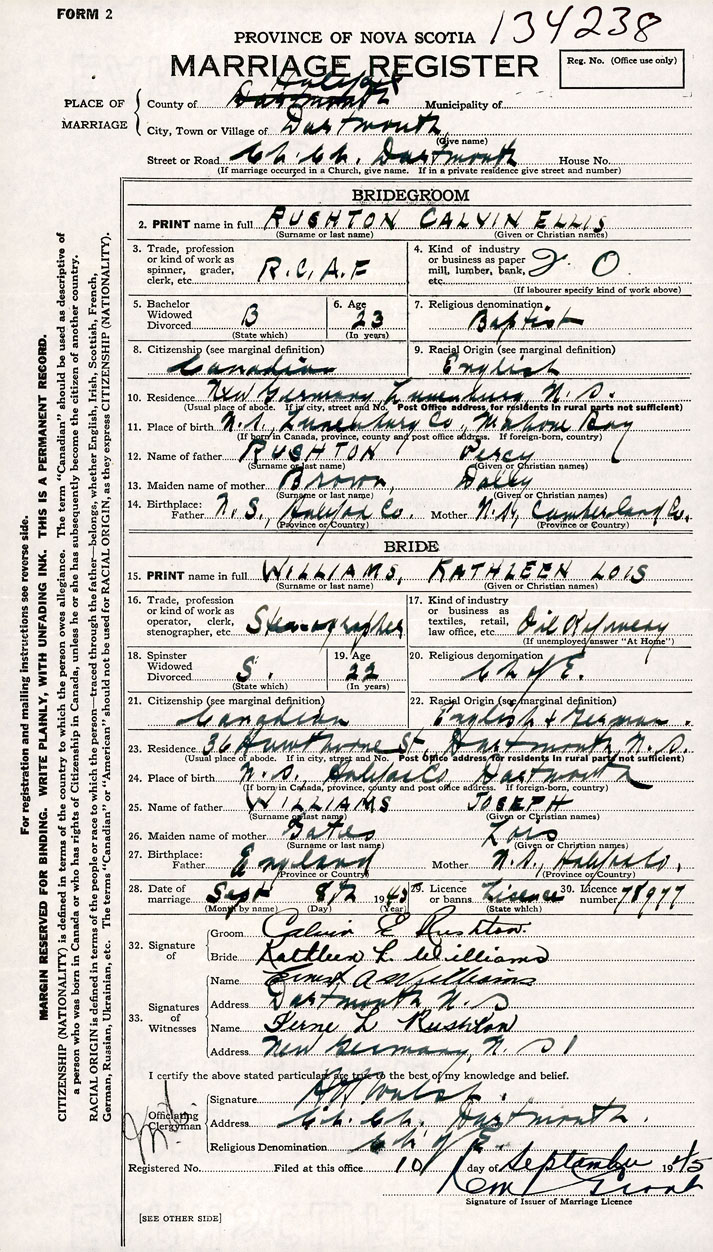 FORM 2
134238
PROVINCE OF NOVA SCOTIA
MARRIAGE REGISTER
Reg. No. (Office use only)
PLACE OF MARRIAGE
County of Dartmouth Halifax Municipality of
City, Town or Village of Dartmouth
(Give name)
Street or Road Ch. Ch. Dartmouth House No.
(If marriage occurred in a Church, give name. If in a private residence give street and number)
BRIDEGROOM
2. PRINT name in full RUSHTON CALVIN ELLIS
(Surname or last name) (Given or Christian names)
3. Trade, profession or kind of work as spinner, grader, clerk, etc. R.C.A.F
4. Kind of industry or business as paper mill, lumber, bank, etc. O
(If labourer specify kind of work above)
5. Bachelor Widowed Divorced B
(State which)
6. Age 23
(In years)
7. Religious denomination. Baptist
8. Citizenship (see marginal definition) Canadian
9. Racial Origin (see marginal definition) English
10. Residence New Germany Lunenburg N. S.
(Usual place of abode. If in city, street and No. Post Office address for residents in rural parts not sufficient)
11. Place of birth N.S. Lunenburg Co, Mahone Bay
(If born in Canada, province, county and post office address. If foreign-born, country)
12. Name of father RUSHTON Percy
(Surname or last name) (Given or Christian names)
13. Maiden name of mother Brown, Dolly
(Surname or last name) (Given or Christian names)
14. Birthplace: Father N. S., Halifax Co. Mother N.S, Cumberland Co.
(Province or Country) (Province or Country)
BRIDE
15. PRINT name in full WILLIAMS, KATHLEEN LOIS
(Surname or last name) (Given or Christian names)
16. Trade, profession or kind of work as operator, clerk, stenographer, etc Stenographer
17. Kind of industry or business as textiles, retail, law office, etc. Oil Refinery
(If unemployed answer "At Home")
18. Spinster Widowed Divorced S.
(State which)
19. Age 22
(In years)
20. Religious denomination Ch of E.
21. Citizenship (see marginal definition) Canadian
22. Racial Origin (see marginal definition) English & German.
23. Residence 36 Hawthorne St, Dartmouth N. S.
(Usual place of abode. If in city, street and No. Post Office address for residents in rural parts not sufficient)
24. Place of birth N. S. Halifax Co Dartmouth
(If born in Canada, province, county and post office address. If foreign-born, country)
25. Name of father WILLIAMS JOSEPH
(Surname or last name) (Given or Christian names)
26. Maiden name of mother Bates Lois
(Surname or last name) (Given or Christian names)
27. Birthplace: Father England Mother N.S., Halifax Co.
(Province or Country) (Province or Country)
28. Date of marriage Sept 8th 1945
(Month by name) (Day) (Year)
29. Licence or banns. Licence
(State which)
30. Licence number 78977
32. Signature of
Groom Calvin E Rushton
Bride Kathleen L. Williams
33. Signatures of Witnesses
Name Ernest A Williams
Address Dartmouth N. S
Name Ferne L Rushton
Address New Germany, N. S
I certify the above stated particulars are true to the best of my knowledge and belief.
Officiating Clergyman
Signature Walsh.
Address Ch. Ch. Dartmouth.
Religious Denomination Ch. of E.
Registered No. Filed at this office 10 day of September 1945
Grant
Signature of Issuer of Marriage Licence
[SEE OTHER SIDE]
For registration and mailing instructions see reverse side.
MARGIN RESERVED FOR BINDING. WRITE PLAINLY, WITH UNFADING INK. THIS IS A PERMANENT RECORD.
CITIZENSHIP (NATIONALITY) is defined in terms of the country to which the person owes allegiance. The term "Canadian" should be used as descriptive of
a person who was born in Canada or who has rights of Citizenship in Canada, unless he or she has subsequently become the citizen of another country.
RACIAL ORIGIN is defined in terms of the people or race to which the person—traced through the father—belongs, whether English, Irish, Scottish, French,
German, Russian, Ukrainian, etc. The terms "Canadian" or "American" should not be used for RACIAL ORIGIN, as they express CITIZENSHIP (NATIONALITY).